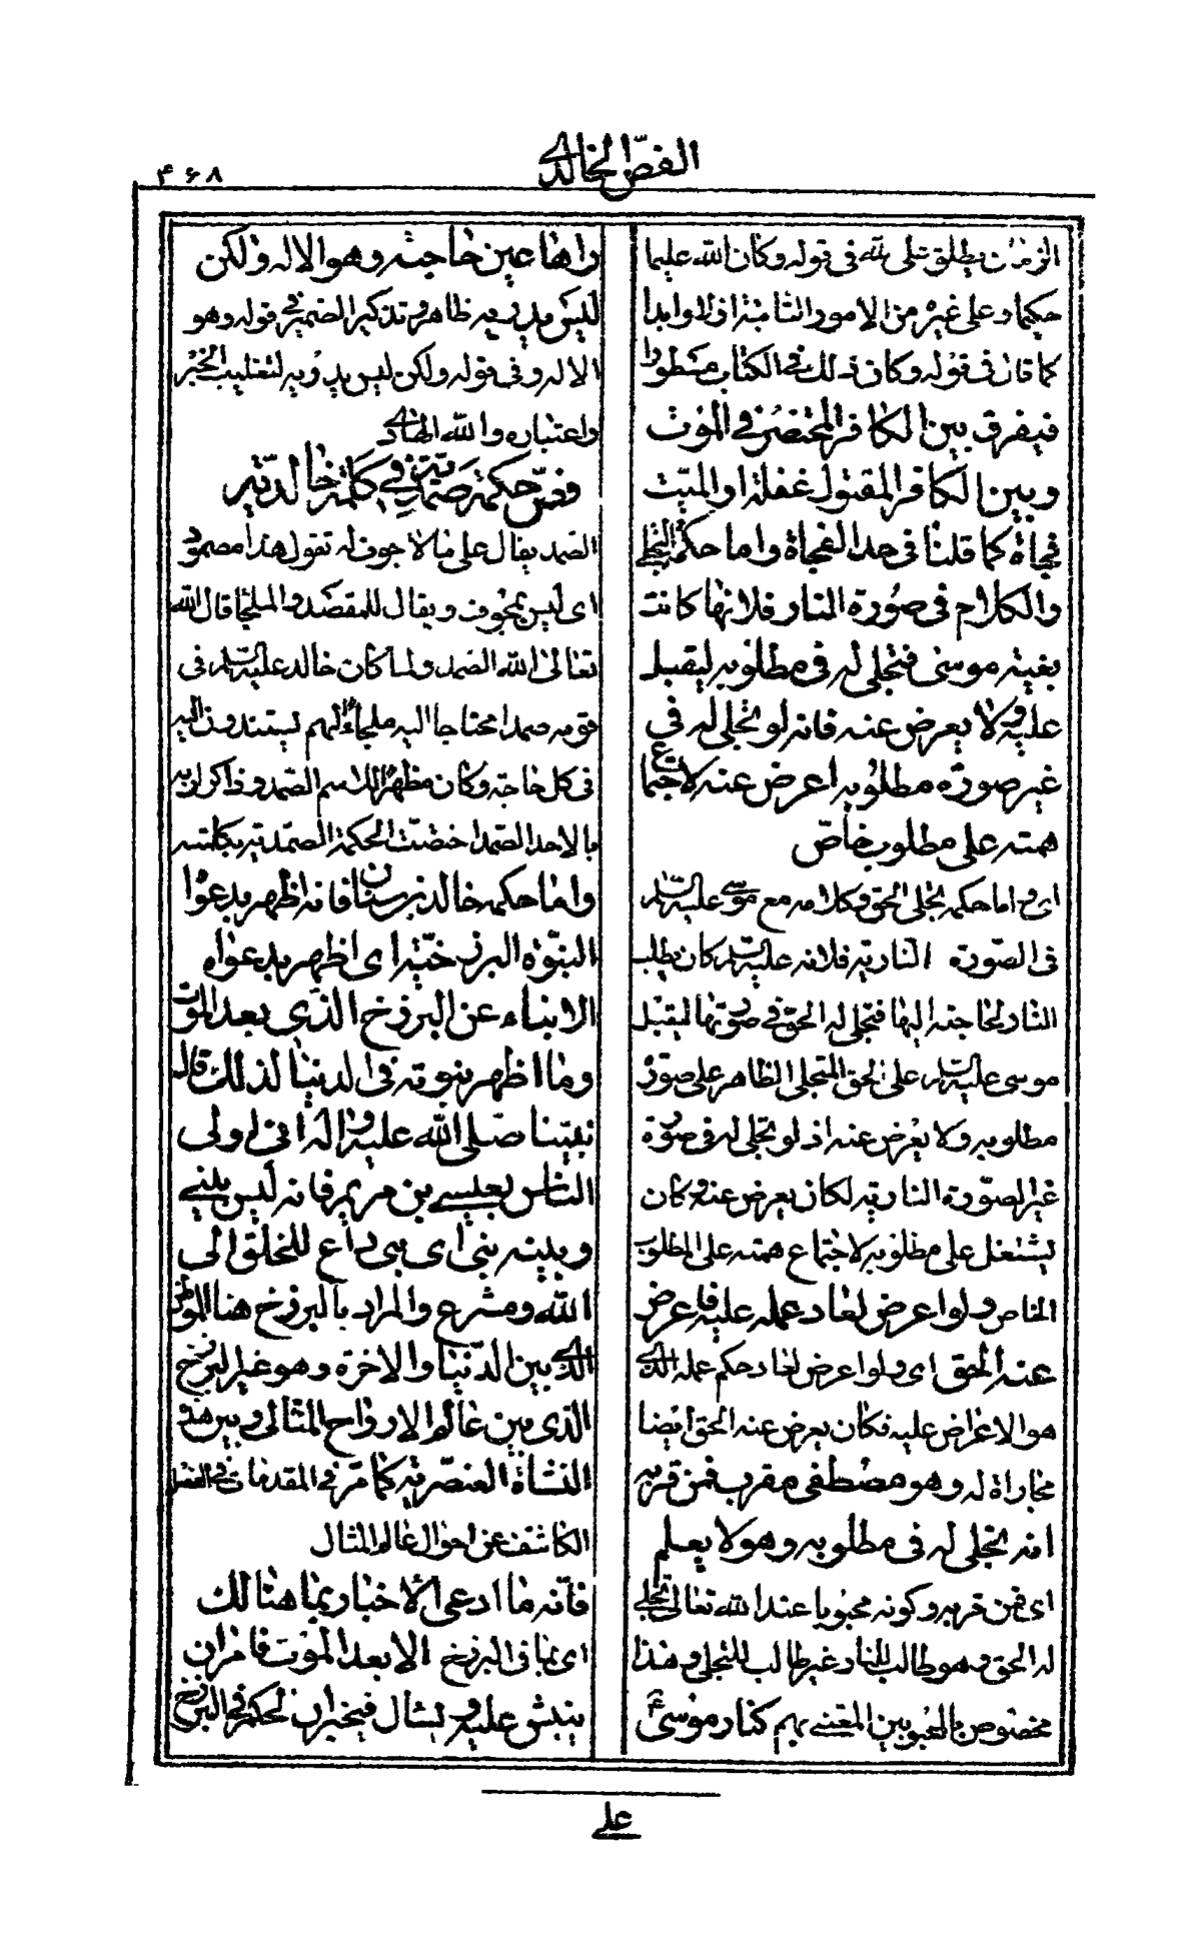 الفصّ الخالدى
۴۶۸
الزمان يطلق على الله فى قوله وكان الله عليما
حكيما وعلى غيره من الامور الثابتة ازلا وابدا
كما قال فى قوله وكان ذلك فى الكتاب مسطورا
فيفرق بين الكافر المحتضر فى الموت
وبين الكافر المقتول غفلة او الميّت
فجاة كما قلنا فى حد الفجاة واما حكمة التجلى
والكلام فى صورة النار فلانها كانت
بغية موسى فتجلى له فى مطلوبه ليقبل
عليه ولا يعرض عنه فانه لو تجلى له فى
غير صورة مطلوبه اعرض عنه لاجتماع
همته على مطلوب خاصّ
اى واما حكمة تجلى الحق وكلامه مع موسى عليه السلام
فى الصّورة النارية فلانه عليه السلام كان يطلب
النار لحاجته اليها فتجلى له الحق فى صورتها ليقبل
موسى عليه السلام على الحق المتجلى الظاهر على صورة
مطلوبه ولا يعرض عنه اذ لو تجلى له فى صورة
غير الصّورة النارية لكان يعرض عنه وكان
يشتغل على مطلوبه لاجتماع همته على المطلوب
الخاص ولو اعرض لعاد عمله عليه فاعرض
عنه الحق اى ولو اعرض لعاد حكم عمله الذى
هو الاعراض عليه فكان يعرض عنه الحق ايضا
مجاراة له وهو مصطفى مقرب فمن قربه
انه تجلى له فى مطلوبه وهو لا يعلم
اى فمن قربه وكونه محبوبا عند الله تعالى تجلى
له الحق وهو طالب للنار غير طالب للتجلى وهذا
مخصوص بالمحبوبين المعتنى بهم كنار موسى ع
راها عين حاجته وهو الاله ولكن
ليس يدريه ظاهر وتذكير الضمير فى قوله وهو
الاله وفى قوله ولكن ليس يدريه لتغليب الخبر
واعتباره والله الهادى
فصّ حكمة صمديّة فى كلمة خالديّة
الصمد يقال على ما لا جوف له تقول هذا مصمود
اى ليس بمجوف ويقال للمقصد والملجا قال الله
تعالى الله الصمد ولما كان خالد عليه السلام فى
قومه صمدا محتاجا اليه ملجاء لهم يستندون اليه
فى كل حاجة وكان مظهرا للاسم الصمد وذاكرا ربه
بالاحد الصمد اختصّت الحكمة الصّمدية بكلمته
واما حكمة خالد بن سنان فانه اظهر بدعواه
النبوّة البرزخيّة اى اظهر بدعواه
الانباء عن البرزخ الذى بعد الموت
وما اظهر بنبوته فى الدنيا لذلك قال
نبيّنا صلى الله عليه وآله انى اولى
الناس بعيسى بن مريم فانه ليس بينى
وبينه نبى اى نبى داع للخلق الى
الله ومشرع والمراد بالبرزخ هنا الموطن
الذى بين الدّنيا والاخرة وهو غير البرزخ
الذى بين عالم الارواح المثالى وبين هذه
النشاة العنصرية كما مر فى المقدمات فى الفصل
الكاشف عن احوال عالم المثال
فانّه ما ادعى الاخبار بما هنالك
اى بما فى البرزخ الا بعد الموت فامر ان
ينبش عليه ويسال فيخبر ان الحكم فى البرزخ
على